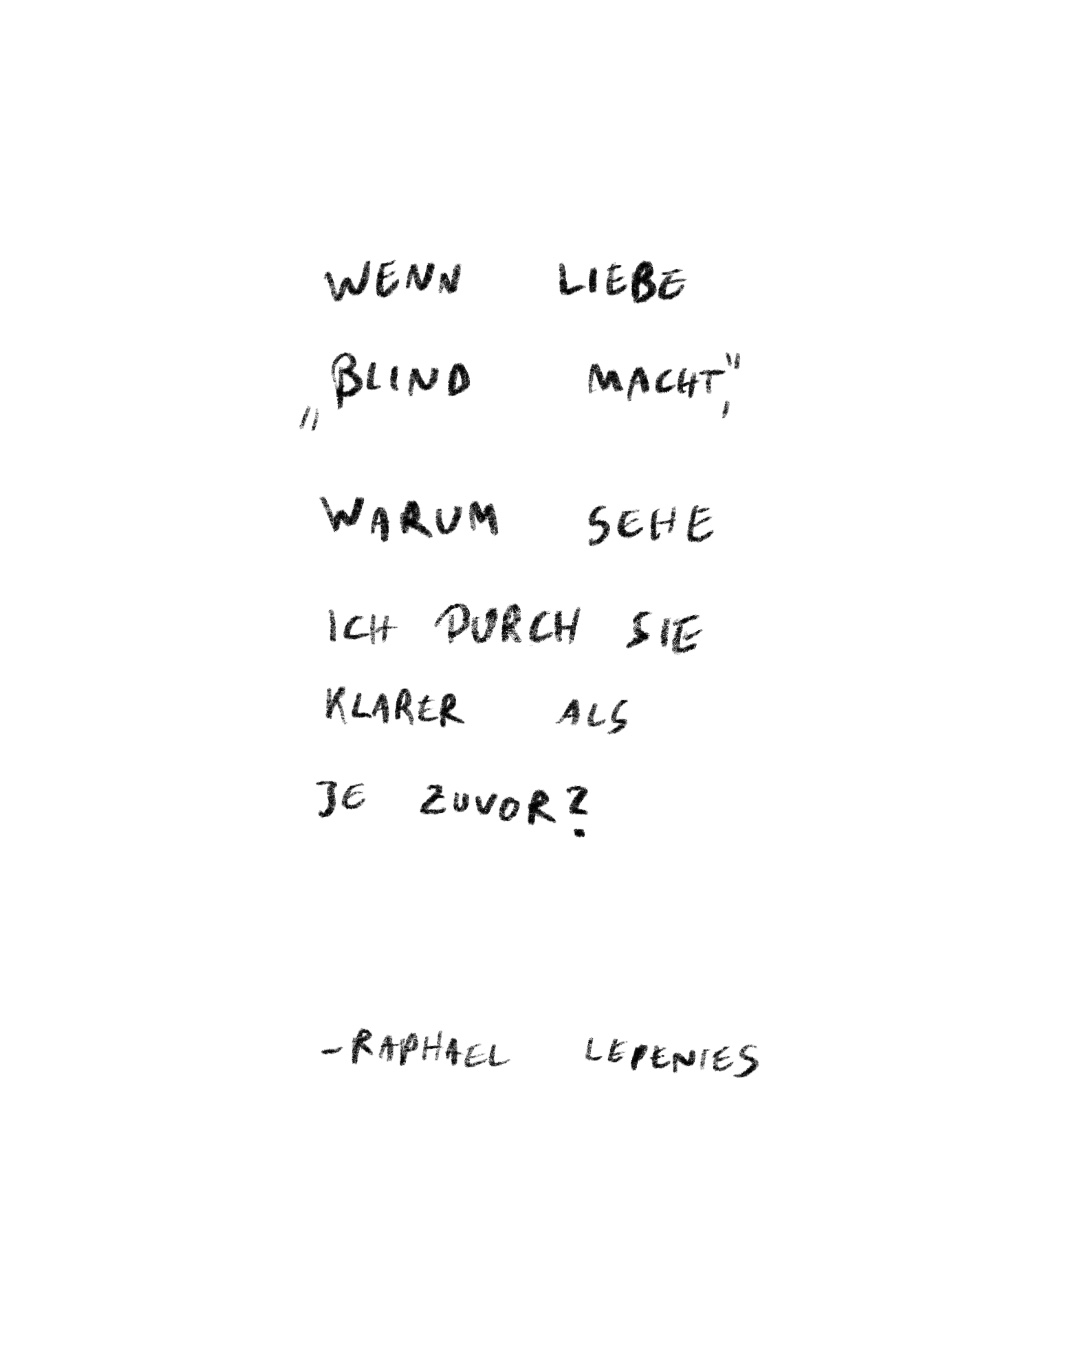 WENN LIEBE
„BLIND MACHT,"
WARUM SEHE
ICH DURCH SIE
KLARER ALS
JE ZUVOR?
-RAPHAEL LEPENIES